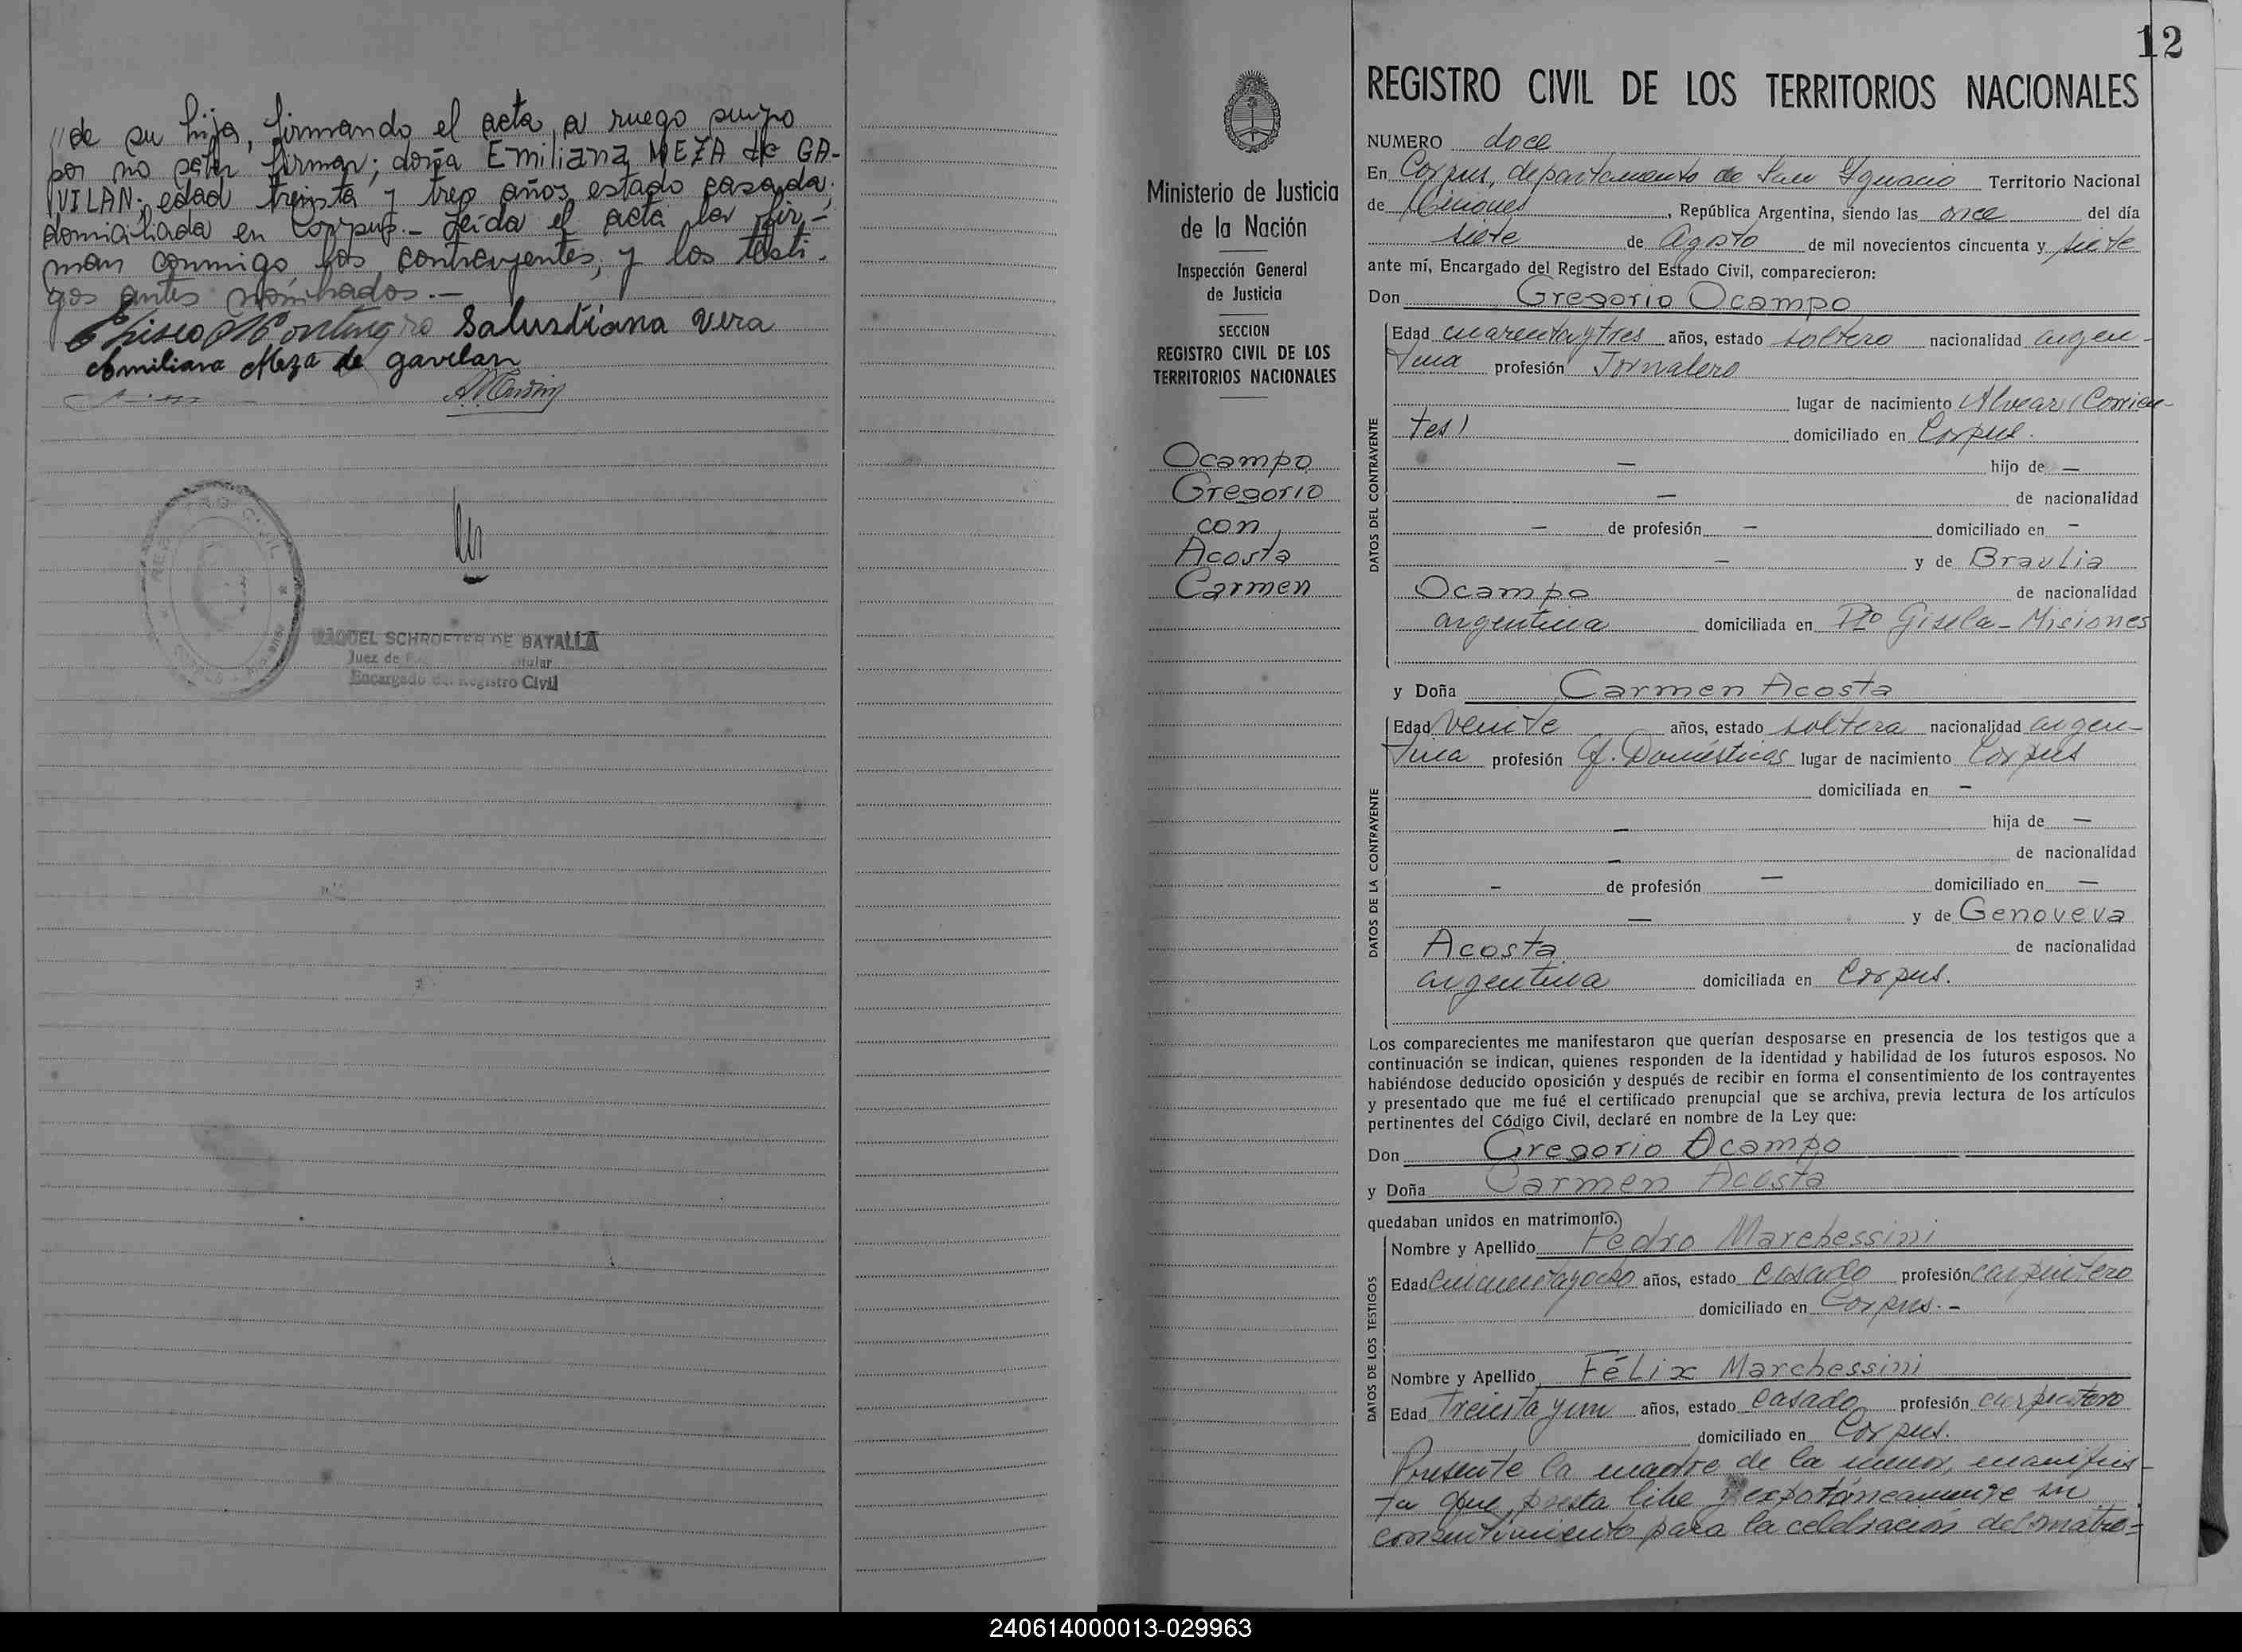 "de su hija, firmando el acta, a ruego suyo
por no saber firmar; doña Emiliana MEZA de GA-
VILAN; edad treinta y tres años, estado casada;
domiciliada en Corpus.- Leída el acta la fir-
man conmigo los contrayentes, y los testi-
gos antes nombrados.-
Salustiana Vera
Emiliana Meza de gavilan
RAQUEL SCHROETER DE BATALLA
Juez de
Encargado del Registro Civil
12
Ministerio de Justicia
de la Nación
Inspección General
de Justicia
SECCION
REGISTRO CIVIL DE LOS
TERRITORIOS NACIONALES
Ocampo
Gregorio
con
Acosta
Carmen
REGISTRO CIVIL DE LOS TERRITORIOS NACIONALES
NUMERO doce
En Corpus, departamento de San Ignacio Territorio Nacional
de Misiones, República Argentina, siendo las once del día
siete de Agosto de mil novecientos cincuenta y siete
ante mí, Encargado del Registro del Estado Civil, comparecieron:
Don Gregorio Ocampo
DATOS DEL CONTRAYENTE
Edad cuarenta y tres años, estado soltero nacionalidad argen-
tina profesión Jornalero
lugar de nacimiento Alvear (Corrien-
tes) domiciliado en Corpus.
— hijo de —
— de nacionalidad
— de profesión — domiciliado en —
— y de Braulia
Ocampo de nacionalidad
argentina domiciliada en Pto Gisela - Misiones
y Doña Carmen Acosta
DATOS DE LA CONTRAYENTE
Edad veinte años, estado soltera nacionalidad argen-
tina profesión Q. Domésticos lugar de nacimiento Corpus
domiciliada en —
— hija de —
— de nacionalidad
— de profesión — domiciliado en —
— y de Genoveva
Acosta de nacionalidad
argentina domiciliada en Corpus.
Los comparecientes me manifestaron que querían desposarse en presencia de los testigos que a
continuación se indican, quienes responden de la identidad y habilidad de los futuros esposos. No
habiéndose deducido oposición y después de recibir en forma el consentimiento de los contrayentes
y presentado que me fué el certificado prenupcial que se archiva, previa lectura de los artículos
pertinentes del Código Civil, declaré en nombre de la Ley que:
Don Gregorio Ocampo
y Doña Carmen Acosta
quedaban unidos en matrimonio.
DATOS DE LOS TESTIGOS
Nombre y Apellido Pedro Marchessini
Edad cincuenta y ocho años, estado casado profesión carpintero
domiciliado en Corpus.-
Nombre y Apellido Félix Marchessini
Edad Treinta y un años, estado casado profesión carpintero
domiciliado en Corpus.
Presente la madre de la menor, manifies-
ta que presta libre y expotáneamente su
consentimiento para la celebración del matri-
240614000013-029963